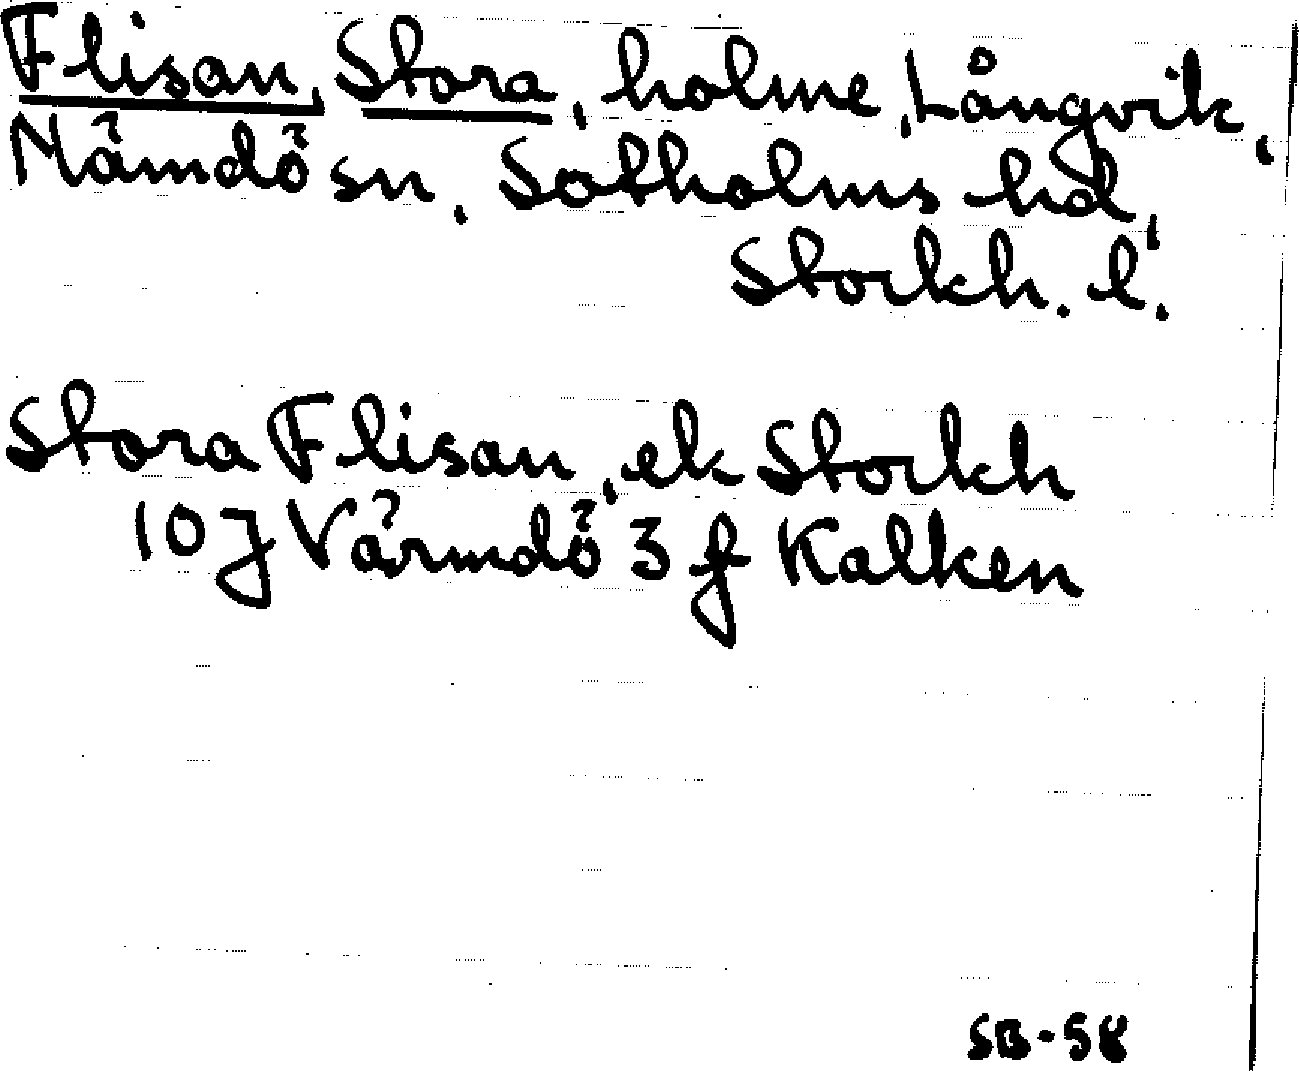 Flisan, Stora, holme, Långvik,
Nämdö sn, Sotholms hd,
Stockh. l.
Stora Flisan, ek Stockh
10 J Värmdö 3 f Kalken
SB-58